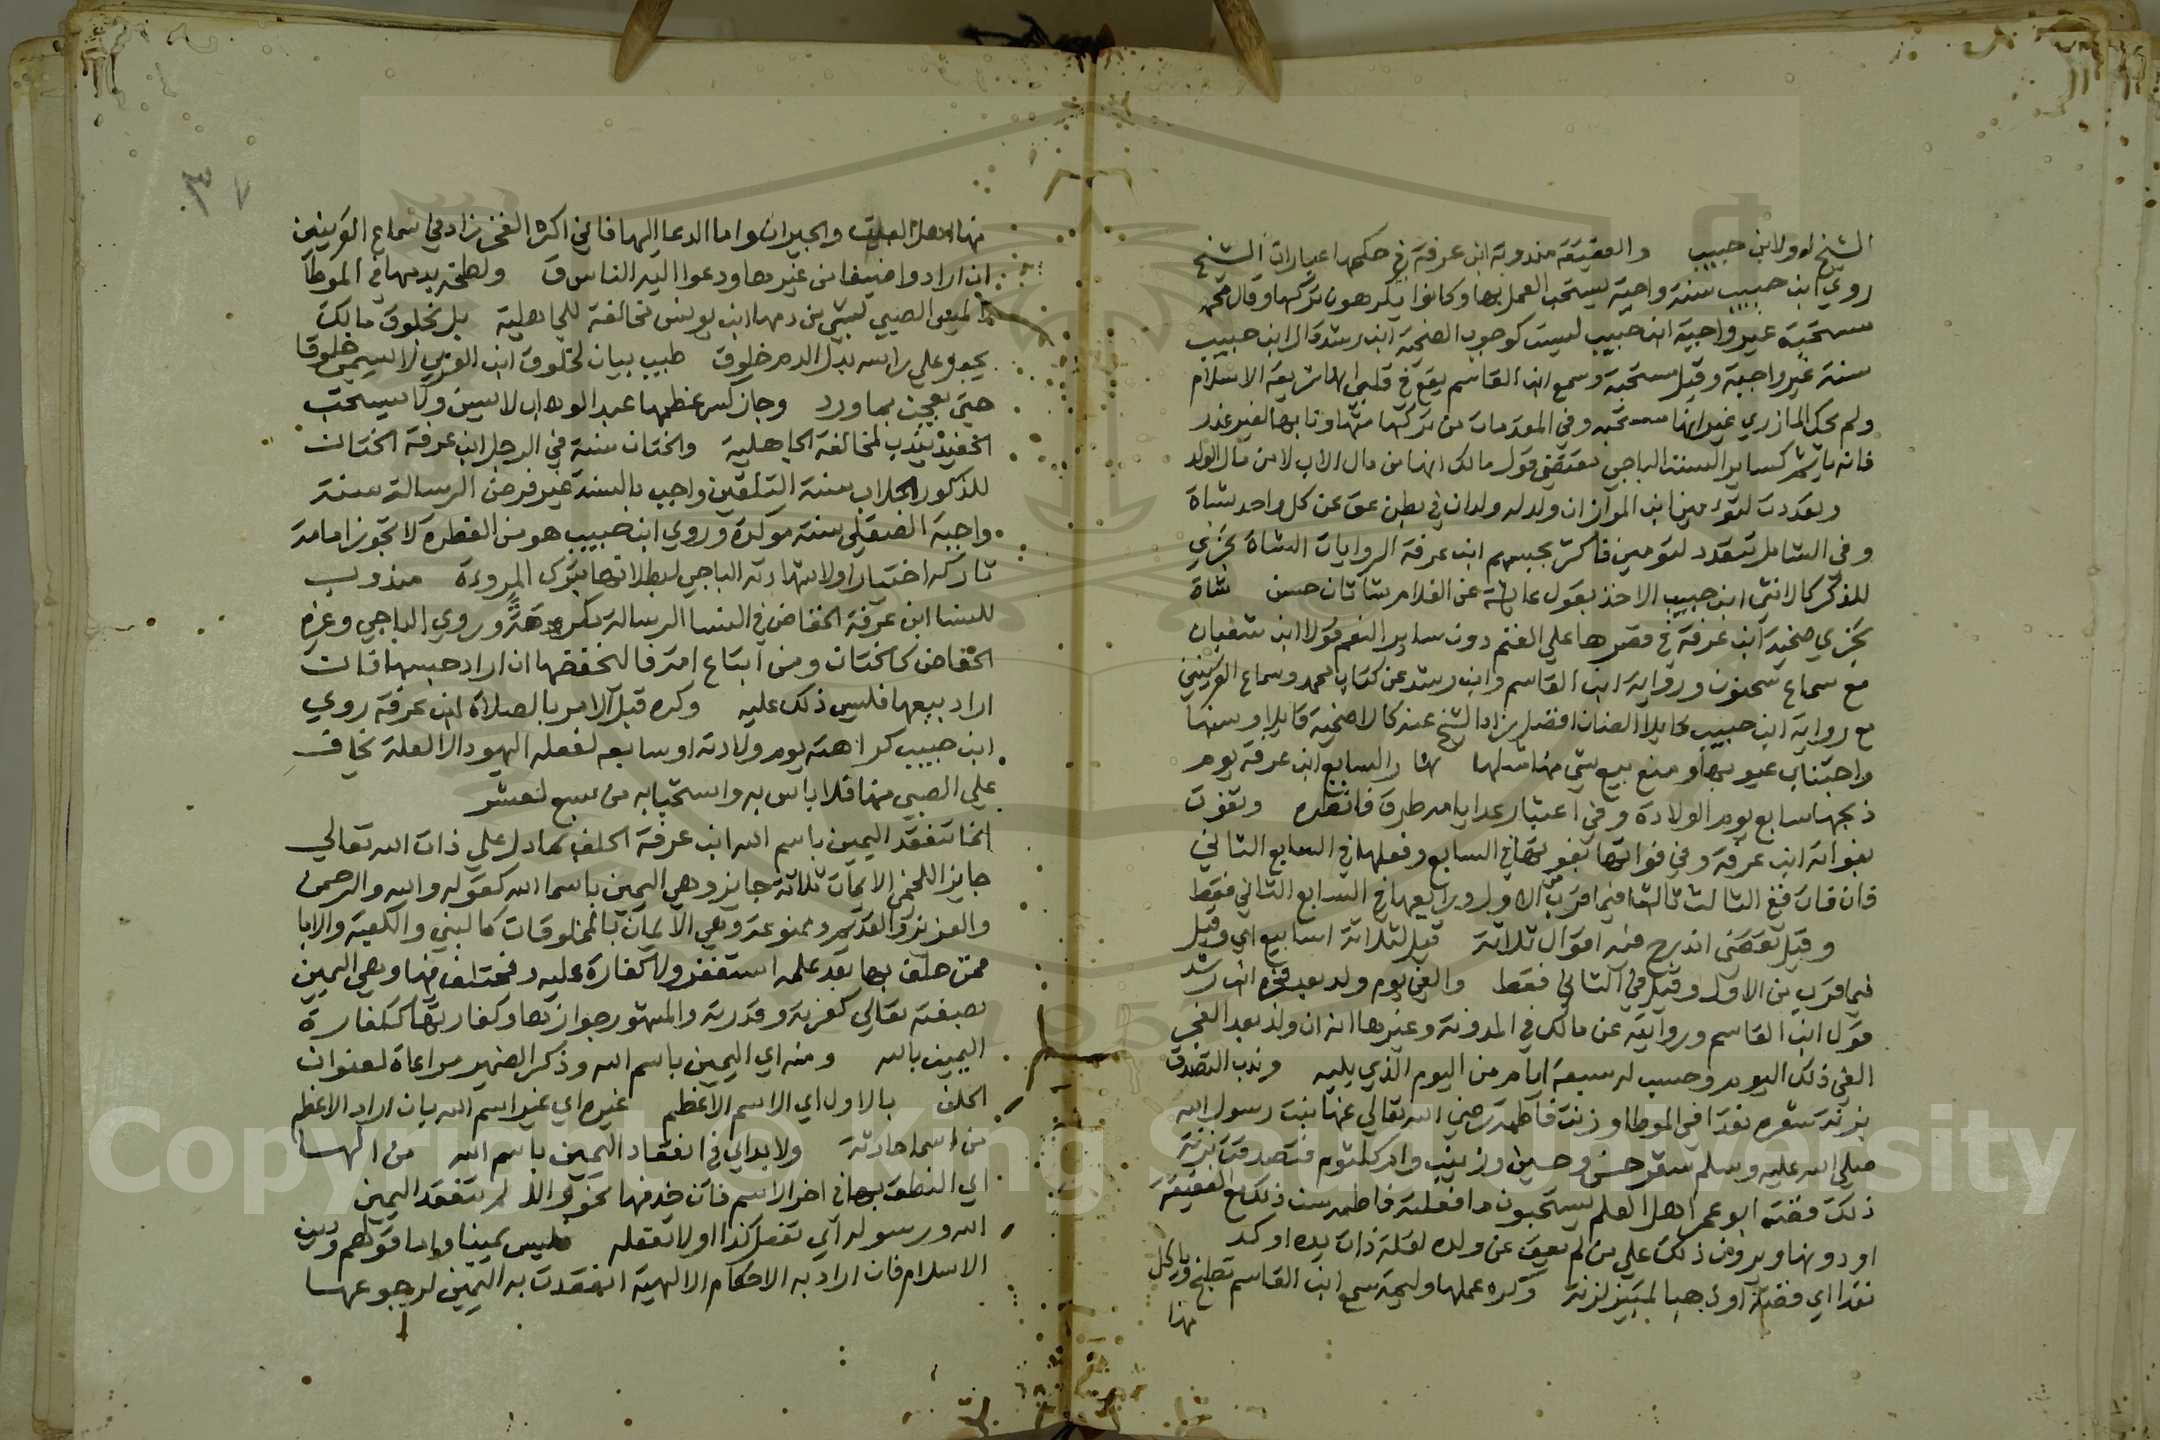 الشيخ له ولابن حبيب والعقيقة مندوبة ابن عرفة في حكمها عبارات الشيخ
روي ابن حبيب سنة واجبة يستحب العمل بها وكانوا يكرهون تركها وقال محمد
مستحبة غير واجبة ابن حبيب ليست كوجوب الضحية ابن رشد قال ابن حبيب
سنة غير واجبة وقيل مستحبة وسمع ابن القاسم يقع في قلبي انها شريعة الاسلام
ولم يحك المازري غير انها مستحبة وفي المقدمات من تركها متهاونا بها لغير عذر
فانه ياثم كساير السنن الباجي مقتضى قول مالك انها من مال الاب لا من مال الولد
وتعددت لتوءمين ابن المواز ان ولد له ولدان في بطن عق عن كل واحد شاة
وفي الشامل تتعدد لتومين فاكثر بحسبهم ابن عرفة الروايات الشاة تجزي
للذكر كالانثى ابن حبيب الاخذ بقول عائشة عن الغلام شاتان حسن شاة
تجزي ضحية ابن عرفة في قصرها على الغنم دون ساير النعم قولا ابن شعبان
مع سماع سحنون ورواية ابن القاسم وابن رشد عن كتاب محمد وسماع القرينين
مع رواية ابن حبيب قايلا الضان افضل زاد الشيخ عنه كالاضحية قايلا وسنها
واجتناب عيوبها ومنع بيع شي منها مثلها نهار السابع ابن عرفة يوم
ذبحها سابع يوم الولادة وفي اعتبار عدايام طرق فانظره وتفوت
بفواته ابن عرفة وفي فواتها بفوتها في السابع وفعلها في السابع الثاني
فان فات ففي الثالث ثالثها فيما قرب من الاول ورابعها في السابع الثاني فقط
وقيل تقضى اندرج فيه اقوال ثلاثة قيل لثلاثة اسابيع اي وقيل
فيما قرب من الاول وقيل في الثاني فقط والغي يوم ولد بعد فجره ابن رشد
قول ابن القاسم وروايته عن مالك في المدونة وغيرها انه ان ولد بعد الفجر
الغي ذلك اليوم وحسب له سبعة ايام من اليوم الذي يليه وندب التصدق
بزنة شعره نقدا في الموطا وزنت فاطمة رضي الله تعالي عنها بنت رسول الله
صلى الله عليه وسلم شعر حسن وحسين وزينب وام كلثوم فتصدقت بزنة
ذلك فضة ابو عمر اهل العلم يستحبون ما فعلته فاطمة من ذلك مع العقيقة
او دونها ويرون ذلك على من لم يعق عن ولده لقلة ذات يده اوكد
نقدا اي فضة او ذهبا لمتيز لزنة وكره عملها وليمة سمع ابن القاسم تطبخ وياكل
منها
منها اهل البيت والجيران واما الدعا اليها فاني اكره الفخر زاد في سماع القرينين
ان ارادوا ضيفا من غيرها ودعوا اليه الناس ق ولطخه بدمها في الموطا
لا يمس الصبي بشي من دمها ابن يونس مخالفة للجاهلية بل بخلوق مالك
يجعل على راسه بدل الدم خلوق طيب بيان لخلوق ابن العربي لا يسمى خلوقا
حتى يعجن بماورد وجاز كسر عظمها عبد الوهاب لا يسن ولا يستحب
الحفيد يندب لمخالفة الجاهلية والختان سنة في الرجل ابن عرفة الختان
للذكور الجلاب سنة التلقين واجب بالسنة غير فرض الرسالة سنة
واجبة الصقلي سنة موكدة وروي ابن حبيب هو من الفطرة لا تجوز امامة
تاركه اختيارا ولا شهادته الباجي لبطلانها بترك المروءة مندوب
للنسا ابن عرفة الخفاض في النسا الرسالة مكرمة وروي الباجي وغيره
الخفاض كالختان ومن ابتاع امة فالخفضها ان اراد حبسها فان
اراد بيعها فليس ذلك عليه وكره قبل الامر بالصلاة ابن عرفة روي
ابن حبيب كراهته يوم ولادته او سابعه لفعله اليهود الا لعلة يخاف
على الصبي منها فلا باس به واستحبابه من سبع لعشر
انما تنعقد اليمين باسم الله ابن عرفة الحلف بمادل على ذات الله تعالى
جايز اللخمي الايمان ثلاثة جايز وهي اليمين باسما الله كقوله والله والرحمن
والعزيز والقدير وممنوعة وهي الايمان بالمخلوقات كالنبي والكعبة والابا
فمن حلف بها بعد علمه استغفر ولا كفارة عليه ومختلف فيها وهي اليمين
بصفته تعالى كعزته وقدرته والمشهور جوازها وكفارتها ككفارة
اليمين بالله ومنه اي اليمين باسم الله وذكر الضمير مراعاة لعنوان
الحلف بالاول اي الاسم الاعظم غيره اي غير اسم الله بان اراد الاعظم
من اسما حادثة ولابد اي في انعقاد اليمين باسم الله من الها
اي النطق بها في اخر الاسم فان حذفها نحو واللا لم تنعقد اليمين
الله ورسوله اي تفعل كذا او لا تفعله فليس يمينا واما قولهم ودين
الاسلام فان اراد به الاحكام الالهية انعقدت به اليمين لرجوعها
٣٧
Copyright © King Saud University
1957